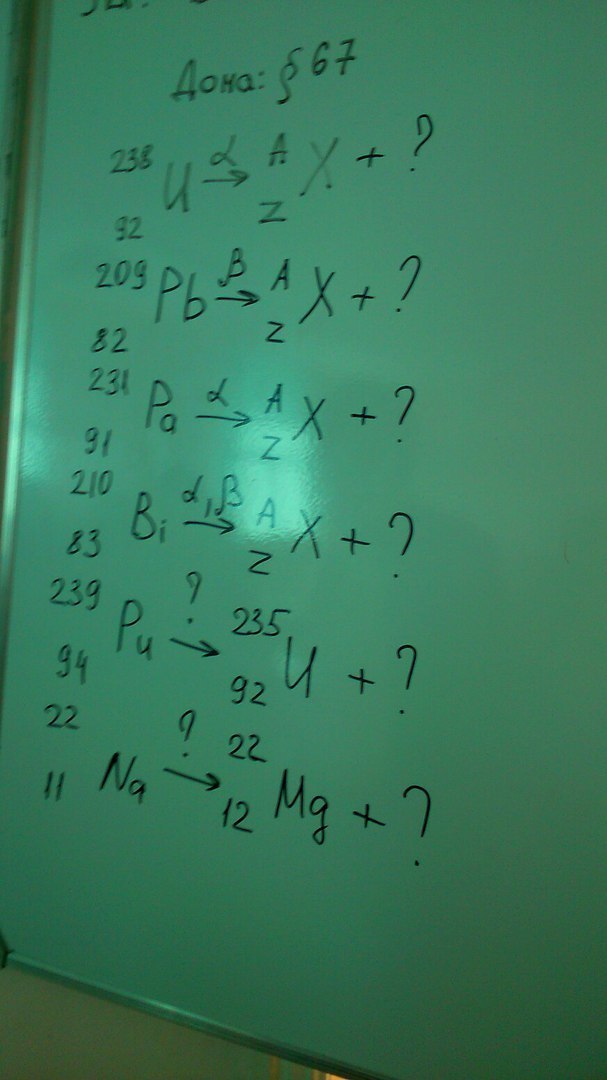 Дома: § 67
²³⁸₉₂U →(α) ᴬ_Z X + ?
²⁰⁹₈₂Pb →(β) ᴬ_Z X + ?
²³¹₉₁Pa →(α) ᴬ_Z X + ?
²¹⁰₈₃Bi →(α,β) ᴬ_Z X + ?
²³⁹₉₄Pu →(?) ²³⁵₉₂U + ?
²²₁₁Na →(?) ²²₁₂Mg + ?